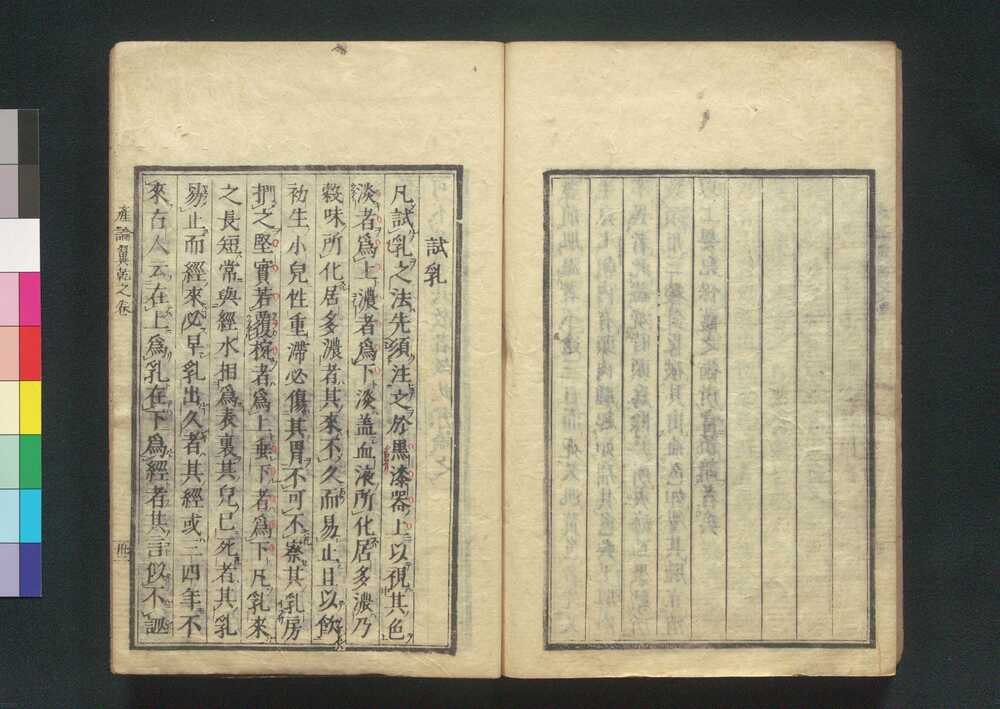 試乳
凡試乳之法先須注之於黒漆器上以視其色
淡者爲上濃者爲下淡盖血液所化居多濃乃
穀味所化居多濃者其來不久而易止且以飲
初生小兒性重滯必傷其胃不可不察其乳房
捫之堅實若覆椀者爲上垂下者爲下凡乳來
之長短常與經水相爲表裏其兒已死者其乳
易止而經來必早乳出久者其經或二四年不
來古人云在上爲乳在下爲經者其言似不誣
產論翼乾之卷